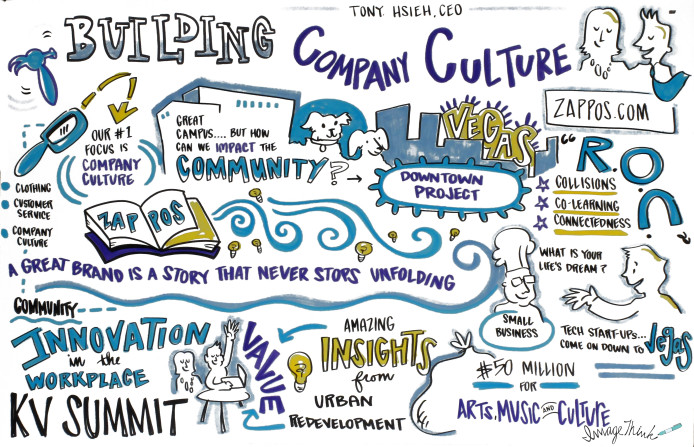 TONY HSIEH, CEO
BUILDING
COMPANY CULTURE
ZAPPOS.COM
OUR #1
FOCUS IS
COMPANY
CULTURE
GREAT
CAMPUS.... BUT HOW
CAN WE IMPACT THE
COMMUNITY?
VEGAS
DOWNTOWN
PROJECT
"R.O
C"
COLLISIONS
CO-LEARNING
CONNECTEDNESS
CLOTHING
CUSTOMER
SERVICE
COMPANY
CULTURE
ZAPPOS
A GREAT BRAND IS A STORY THAT NEVER STOPS UNFOLDING
COMMUNITY
SMALL
BUSINESS
WHAT IS YOUR
LIFE'S DREAM?
TECH START-UPS...
COME ON DOWN TO Vegas
INNOVATION
in the
WORKPLACE
VALUE
KV SUMMIT
AMAZING
INSIGHTS
from
URBAN
REDEVELOPMENT
$50 MILLION
FOR
ARTS, MUSIC AND CULTURE
ImageThink